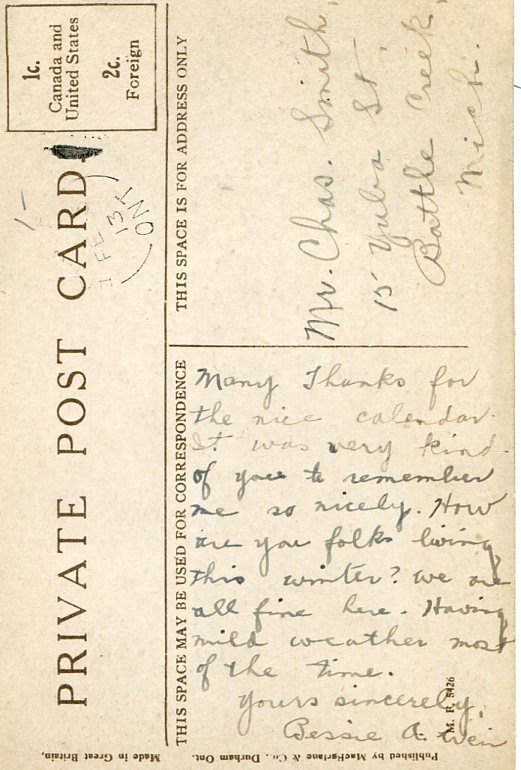 1c.
Canada and
United States
2c.
Foreign
PRIVATE POST CARD.
13
ONT
THIS SPACE IS FOR ADDRESS ONLY
Mr. Chas. Smith,
15 Yuba St.
Battle Creek,
Mich.
THIS SPACE MAY BE USED FOR CORRESPONDENCE
Many Thanks for
the nice calendar.
It was very kind
of you to remember
me so nicely. How
are you folks living
this winter? We are
all fine here. Having
mild weather most
of the time.
Yours sincerely,
Bessie A. Weir
M. F. 5426
Published by MacFarlane & Co., Durham Ont.
Made in Great Britain,